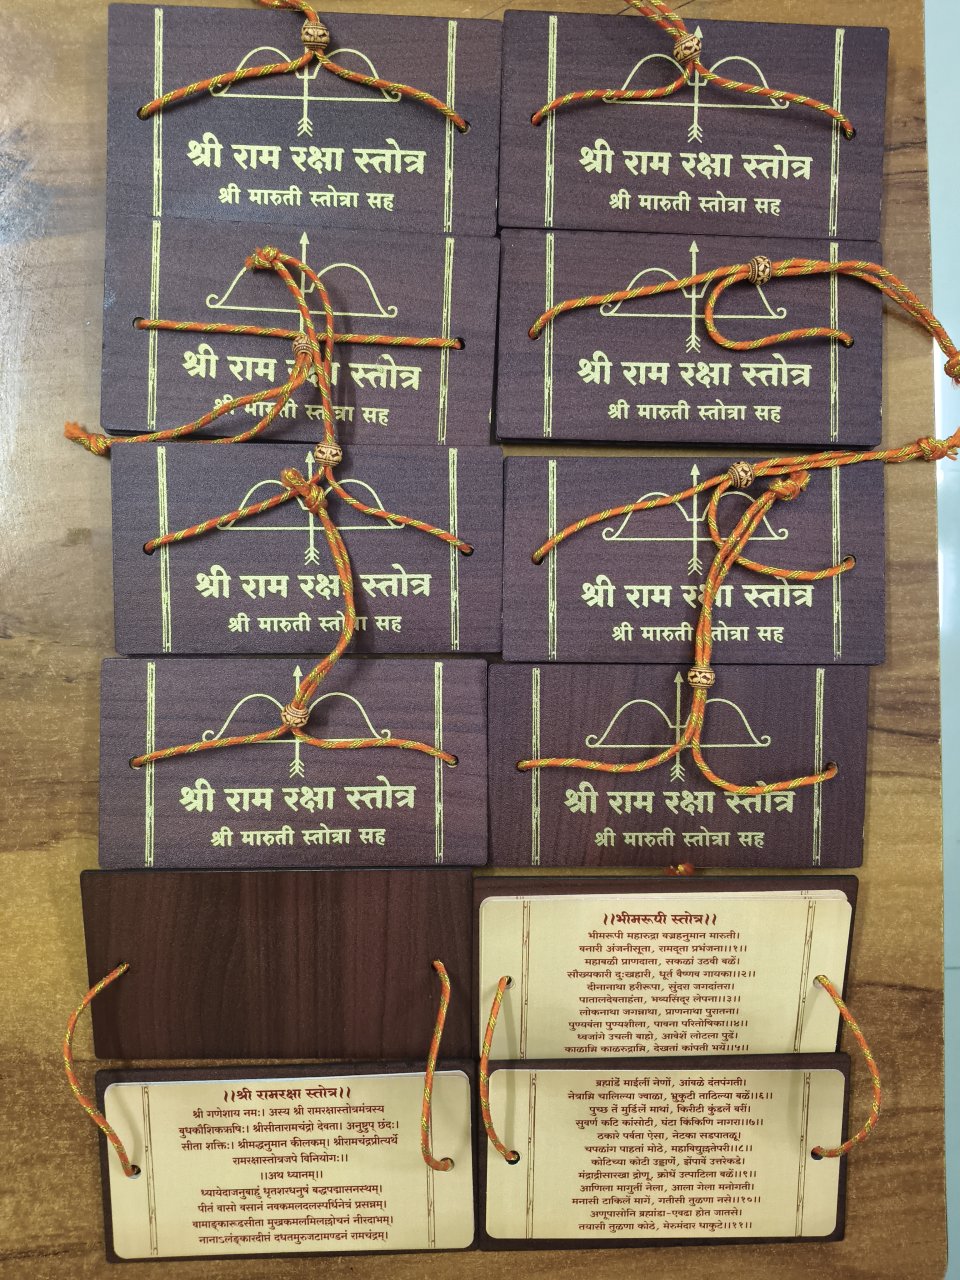 श्री राम रक्षा स्तोत्र
श्री मारुती स्तोत्रा सह
श्री राम रक्षा स्तोत्र
श्री मारुती स्तोत्रा सह
श्री राम रक्षा स्तोत्र
श्री मारुती स्तोत्रा सह
श्री राम रक्षा स्तोत्र
श्री मारुती स्तोत्रा सह
श्री राम रक्षा स्तोत्र
श्री मारुती स्तोत्रा सह
श्री राम रक्षा स्तोत्र
श्री मारुती स्तोत्रा सह
श्री राम रक्षा स्तोत्र
श्री मारुती स्तोत्रा सह
श्री राम रक्षा स्तोत्र
श्री मारुती स्तोत्रा सह
।।भीमरूपी स्तोत्र।।
भीमरूपी महारुद्रा बज्रहनुमान मारुती।
वनारी अंजनीसूता, रामदूता प्रभंजना।।१।।
महाबळी प्राणदाता, सकळां उठवी बळें।
सौख्यकारी दुःखहारी, धूर्त वैष्णव गायका।।२।।
दीनानाथा हरीरूपा, सुंदरा जगदांतरा।
पातालदेवताहंता, भव्यसिंदूर लेपना।।३।।
लोकनाथा जगन्नाथा, प्राणनाथा पुरातना।
पुण्यवंता पुण्यशीला, पावना परितोषिका।।४।।
ध्वजांगे उचली बाहो, आवेशें लोटला पुढें।
काळाग्नि काळरुद्राग्नि, देखतां कांपती भयें।।५।।
ब्रह्मांडें माईलीं नेणों, आंवळे दंतपंगती।
नेत्राग्नि चालिल्या ज्वाळा, भ्रुकुटी ताठिल्या बळें।।६।।
पुच्छ तें मुर्डिलें माथां, किरीटी कुंडलें बरीं।
सुवर्ण कटि कांसोटी, घंटा किंकिणि नागरा।।७।।
ठकारे पर्वता ऐसा, नेटका सडपातळू।
चपळांग पाहतां मोठे, महाविद्युल्लतेपरी।।८।।
कोटिच्या कोटी उड्डाणें, झेंपावे उत्तरेकडे।
मंद्राद्रीसारखा द्रोणू, क्रोधें उत्पाटिला बळें।।९।।
आणिला मागुतीं नेला, आला गेला मनोगती।
मनासी टाकिलें मागें, गतीसी तुळणा नसे।।१०।।
अणूपासोनि ब्रह्मांडा-एवढा होत जातसे।
तयासी तुळणा कोठे, मेरुमंदार धाकुटे।।११।।
।।श्री रामरक्षा स्तोत्र।।
श्री गणेशाय नमः। अस्य श्री रामरक्षास्तोत्रमंत्रस्य
बुधकौशिकऋषिः। श्रीसीतारामचंद्रो देवता। अनुष्टुप् छंदः।
सीता शक्तिः। श्रीमद्धनुमान कीलकम्। श्रीरामचंद्रप्रीत्यर्थे
रामरक्षास्तोत्रजपे विनियोगः।।
।।अथ ध्यानम्।।
ध्यायेदाजनुबाहुं धृतशरधनुषं बद्धपद्मासनस्थम्।
पीतं वासो वसानं नवकमलदलस्पर्धिनेत्रं प्रसन्नम्।
वामाङ्कारूढसीता मुखकमलमिलल्लोचनं नीरदाभम्।
नानाऽलंङ्कारदीप्तं दधतमुरुजटामण्डनं रामचंद्रम्।